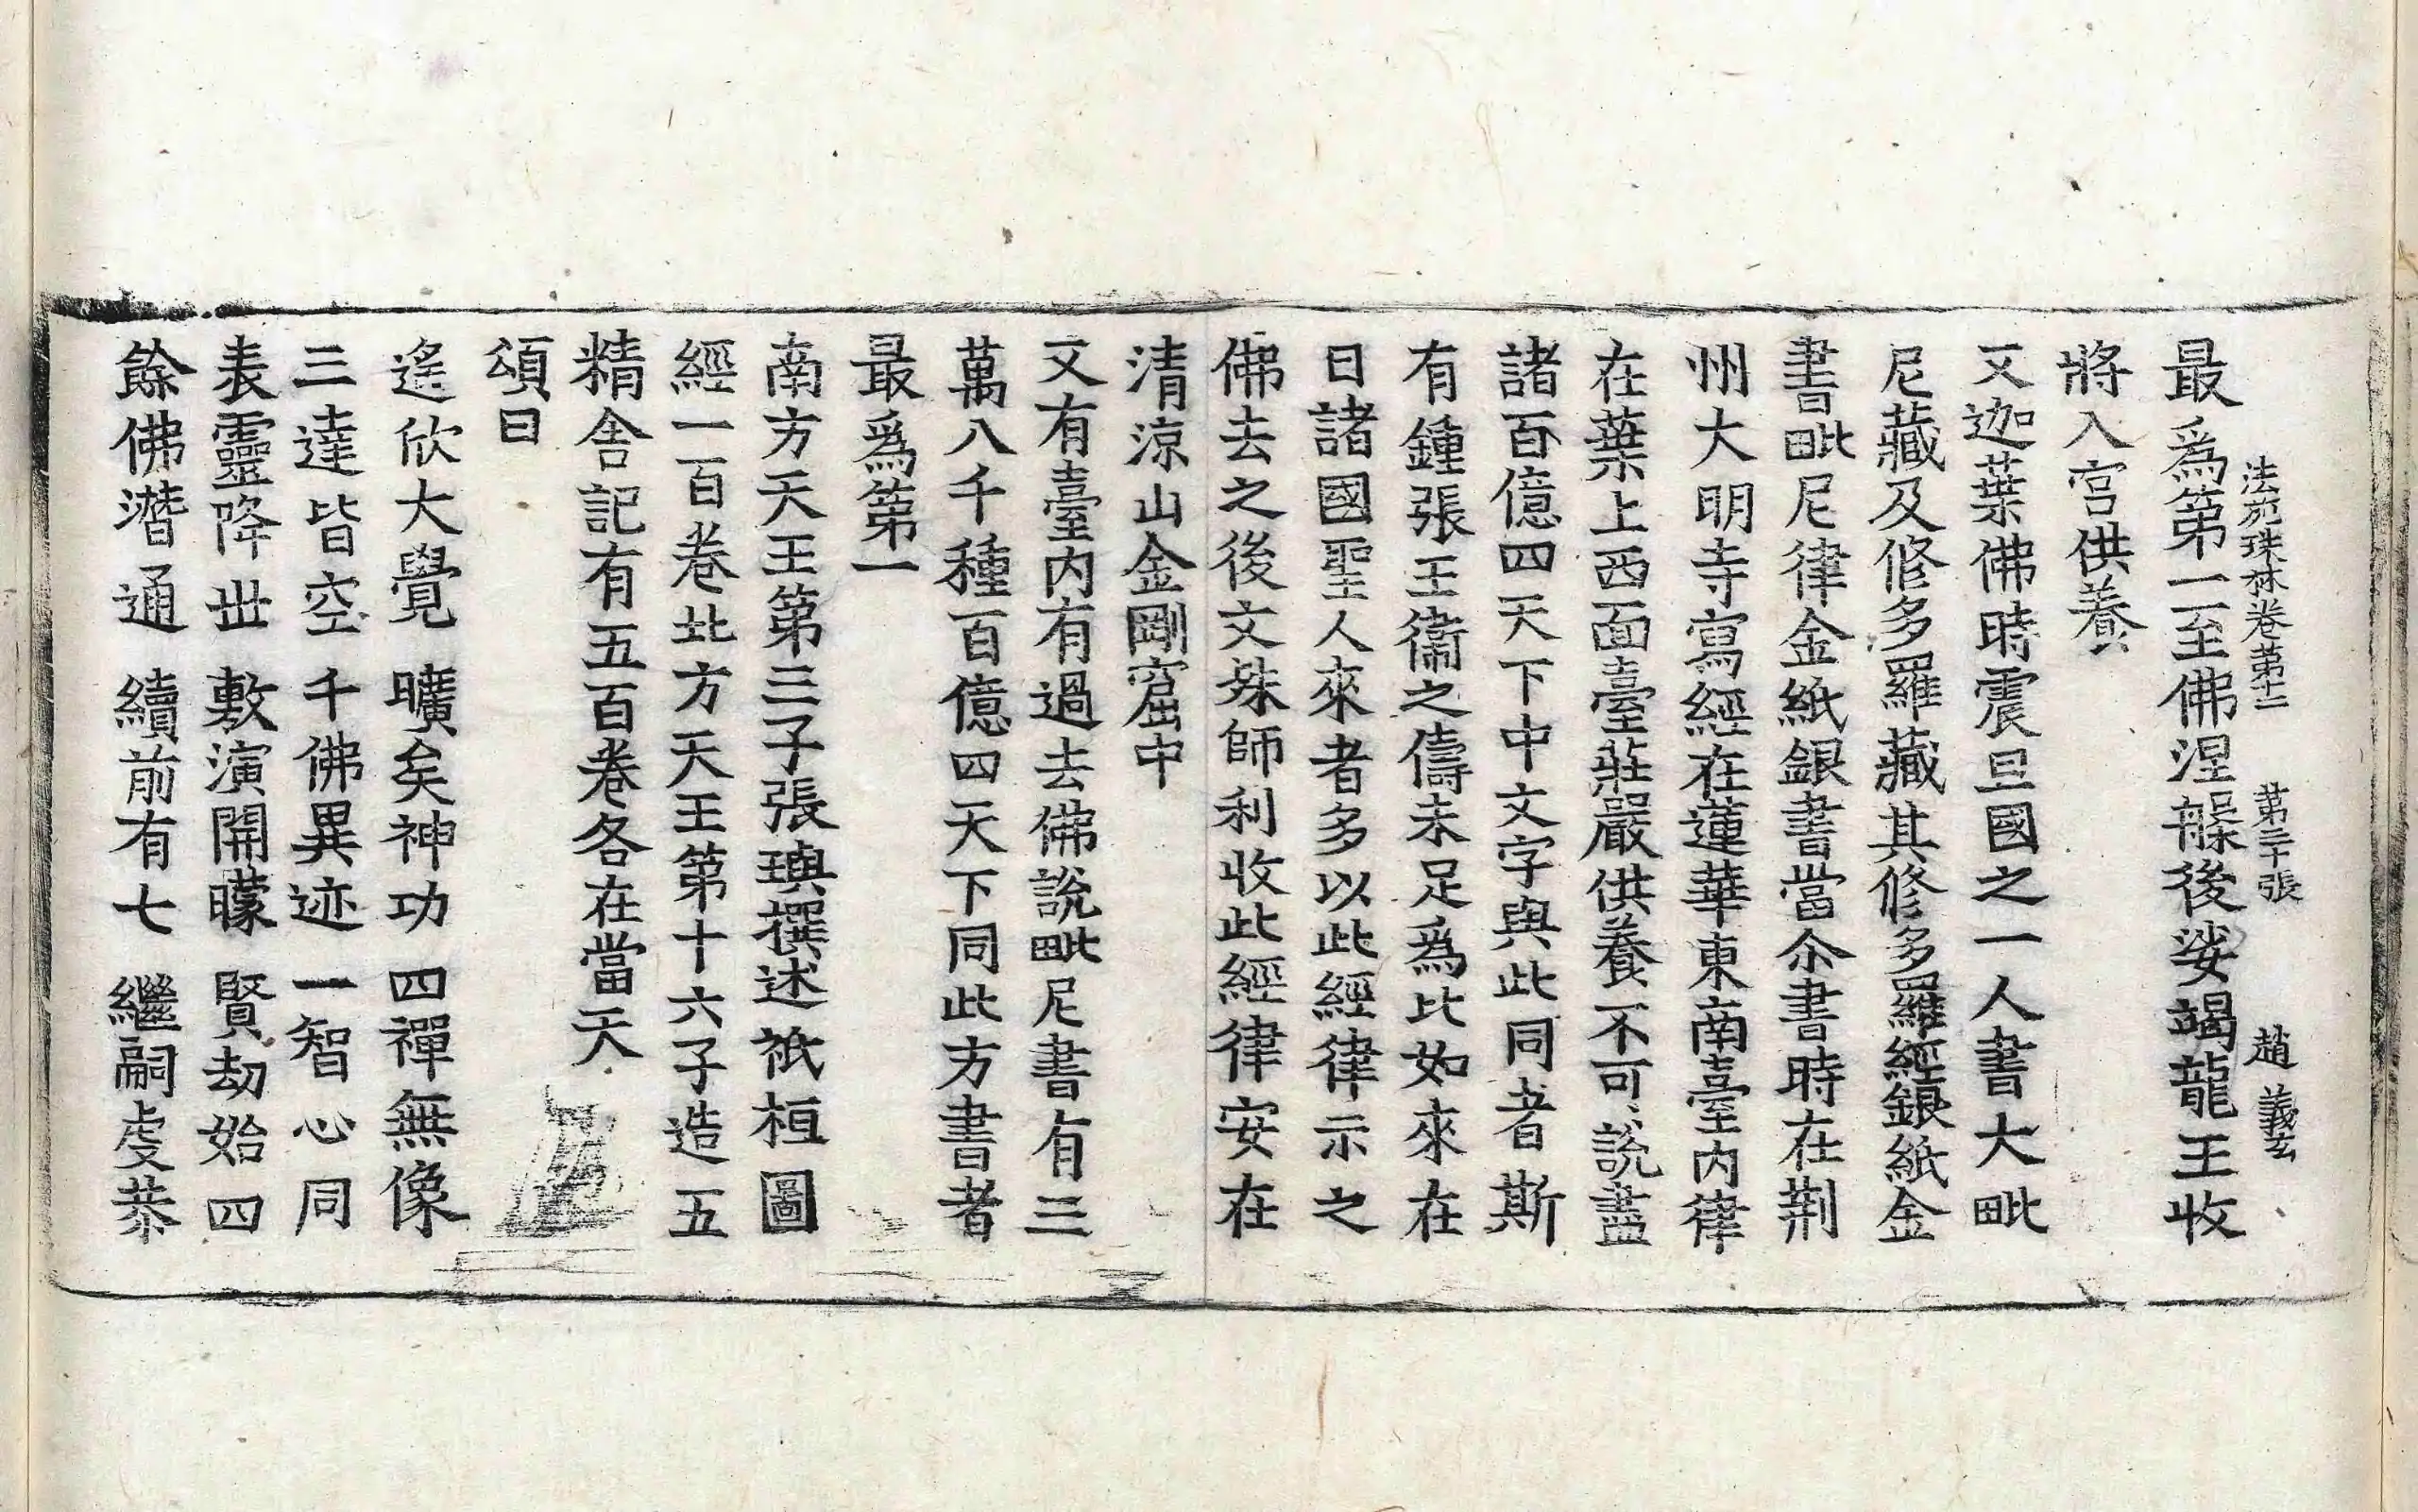 法苑珠林卷第十二 第三十張 趙義玄
最爲第一至佛涅槃後娑竭龍王收
將入宫供養
又迦葉佛時震旦國之一人書大毗
尼藏及修多羅藏其修多羅經銀紙金
書毗尼律金紙銀書當尒書時在荆
州大明寺寫經在蓮華東南臺内律
在葉上西面臺莊嚴供養不可説盡
諸百億四天下中文字與此同者斯
有鍾張王衞之儔未足爲比如來在
日諸國聖人來者多以此經律示之
佛去之後文殊師利收此經律安在
清涼山金剛窟中
又有臺内有過去佛説毗尼書有三
萬八千種百億四天下同此方書者
最爲第一
南方天王第三子張璵撰述祇桓圖
經一百卷北方天王第十六子造五
精舍記有五百卷各在當天
頌曰
遙欣大覺 曠矣神功 四禪無像
三達皆空 千佛異迹 一智心同
表靈降世 敷演開矇 賢劫始四
餘佛潛通 續前有七 繼嗣虔恭